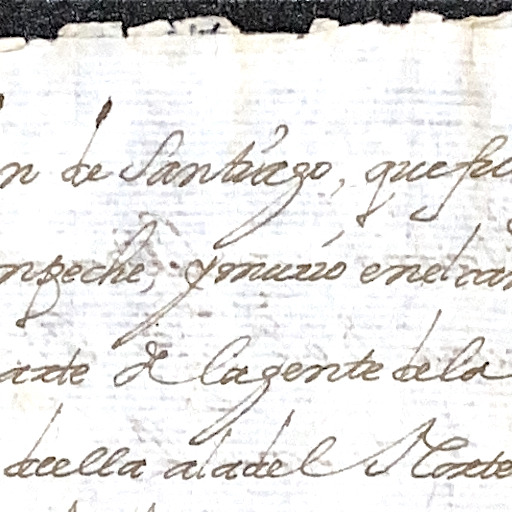 n de Santiago, que fu
mpeche, y murió en el ca
arte de la gente de la
de ella a la del Norte